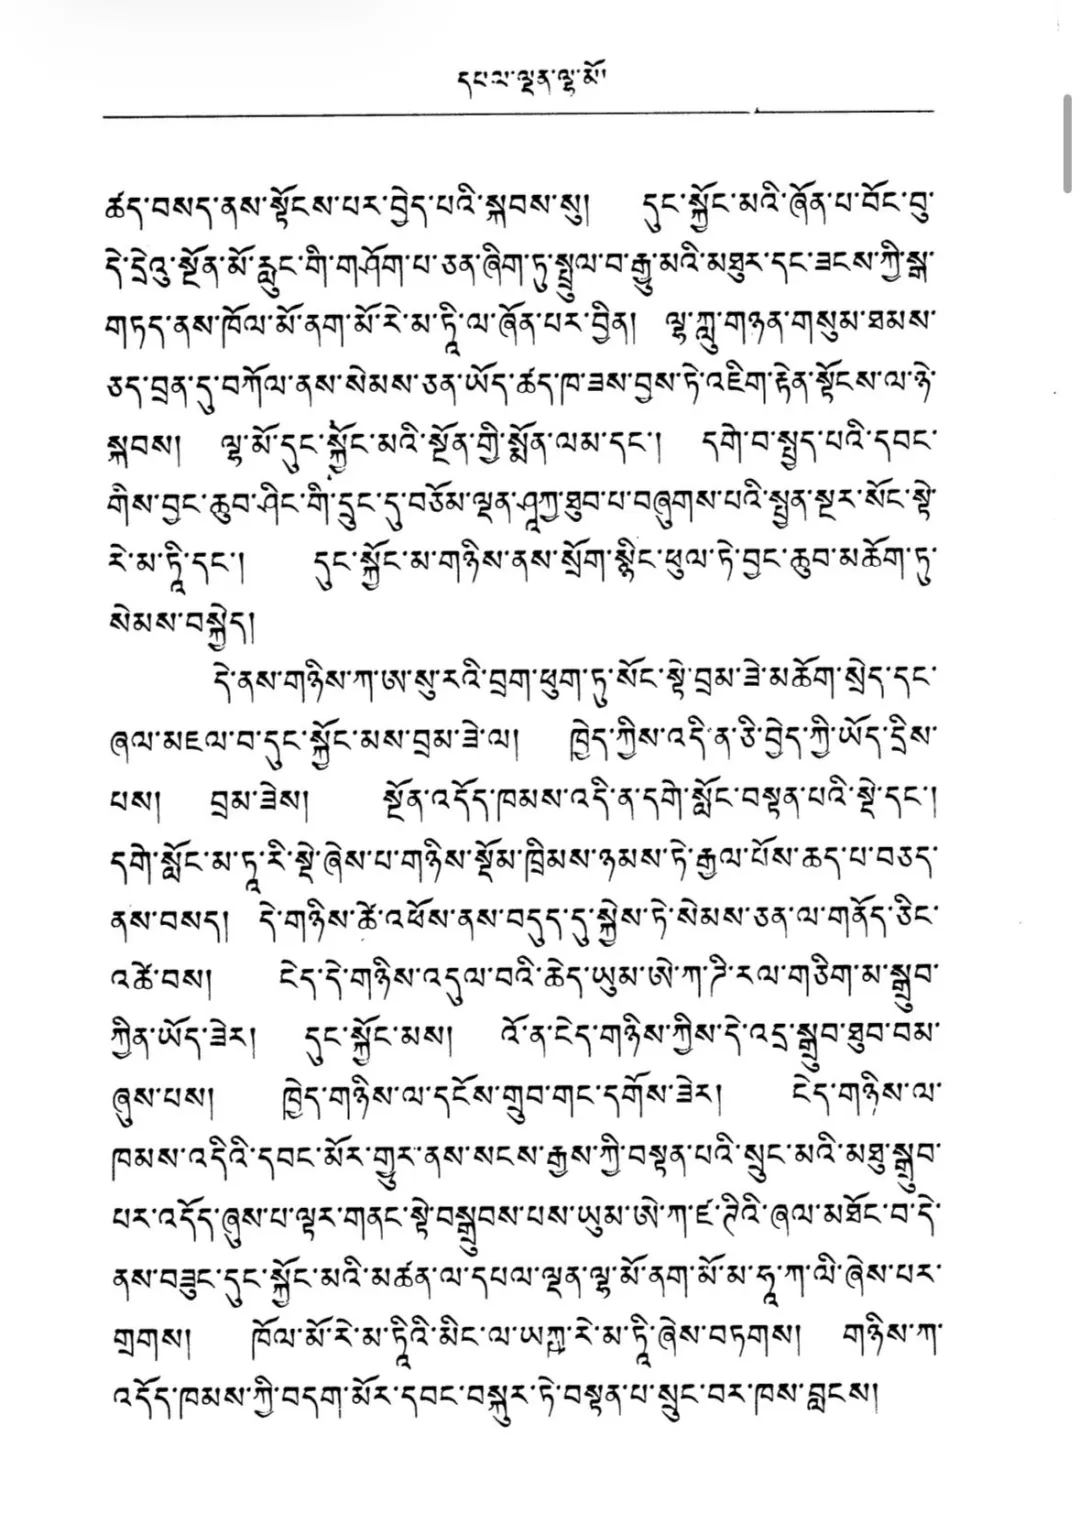 དཔལ་ལྡན་ལྷ་མོ།
ཚད་བསད་ནས་སྟོངས་པར་བྱེད་པའི་སྐབས་སུ། དུང་སྐྱོང་མའི་ཞོན་པ་བོང་བུ་
དེ་དྲེའུ་སྔོན་མོ་རླུང་གི་གཤོག་པ་ཅན་ཞིག་ཏུ་སྤྲུལ་བ་རྒྱུ་མའི་མཐུར་དང་ཟངས་ཀྱི་སྒ་
གཏད་ནས་ཁོལ་མོ་ནག་མོ་རེ་མ་ཏཱི་ལ་ཞོན་པར་བྱིན། ལྷ་ཀླུ་གཉན་གསུམ་ཐམས་
ཅད་བྲན་དུ་བཀོལ་ནས་སེམས་ཅན་ཡོད་ཚད་ཁ་ཟས་བྱས་ཏེ་འཇིག་རྟེན་སྟོངས་ལ་ཉེ་
སྐབས། ལྷ་མོ་དུང་སྐྱོང་མའི་སྔོན་གྱི་སྨོན་ལམ་དང་། དགེ་བ་སྤྱད་པའི་དབང་
གིས་བྱང་ཆུབ་ཤིང་གི་དྲུང་དུ་བཅོམ་ལྡན་ཤཱཀྱ་ཐུབ་པ་བཞུགས་པའི་སྤྱན་སྔར་སོང་སྟེ་
རེ་མ་ཏཱི་དང་། དུང་སྐྱོང་མ་གཉིས་ནས་སྲོག་སྙིང་ཕུལ་ཏེ་བྱང་ཆུབ་མཆོག་ཏུ་
སེམས་བསྐྱེད།
དེ་ནས་གཉིས་ཀ་ཨ་སུ་རའི་བྲག་ཕུག་ཏུ་སོང་སྟེ་བྲམ་ཟེ་མཆོག་སྲེད་དང་
ཞལ་མཇལ་བ་དུང་སྐྱོང་མས་བྲམ་ཟེ་ལ། ཁྱེད་ཀྱིས་འདི་ན་ཅི་བྱེད་ཀྱི་ཡོད་དྲིས་
པས། བྲམ་ཟེས། སྔོན་འདོད་ཁམས་འདི་ན་དགེ་སློང་བསྟན་པའི་སྡེ་དང་།
དགེ་སློང་མ་ཏཱ་རི་སྡེ་ཞེས་པ་གཉིས་སྡོམ་ཁྲིམས་ཉམས་ཏེ་རྒྱལ་པོས་ཆད་པ་བཅད་
ནས་བསད། དེ་གཉིས་ཚེ་འཕོས་ནས་བདུད་དུ་སྐྱེས་ཏེ་སེམས་ཅན་ལ་གནོད་ཅིང་
འཚེ་བས། ངེད་དེ་གཉིས་འདུལ་བའི་ཆེད་ཡུམ་ཨེ་ཀ་ཊི་རལ་གཅིག་མ་སྒྲུབ་
ཀྱིན་ཡོད་ཟེར། དུང་སྐྱོང་མས། འོ་ན་ངེད་གཉིས་ཀྱིས་དེ་འདྲ་སྒྲུབ་ཐུབ་བམ་
ཞུས་པས། ཁྱེད་གཉིས་ལ་དངོས་གྲུབ་གང་དགོས་ཟེར། ངེད་གཉིས་ལ་
ཁམས་འདིའི་དབང་མོར་གྱུར་ནས་སངས་རྒྱས་ཀྱི་བསྟན་པའི་སྲུང་མའི་མཐུ་སྒྲུབ་
པར་འདོད་ཞུས་པ་ལྟར་གནང་སྟེ་བསྒྲུབས་པས་ཡུམ་ཨེ་ཀ་ཛ་ཊིའི་ཞལ་མཐོང་བ་དེ་
ནས་བཟུང་དུང་སྐྱོང་མའི་མཚན་ལ་དཔལ་ལྡན་ལྷ་མོ་ནག་མོ་མ་ཧཱ་ཀ་ལི་ཞེས་པར་
གྲགས། ཁོལ་མོ་རེ་མ་ཏཱིའི་མིང་ལ་ཡཀྵ་རེ་མ་ཏཱི་ཞེས་བཏགས། གཉིས་ཀ་
འདོད་ཁམས་ཀྱི་བདག་མོར་དབང་བསྐུར་ཏེ་བསྟན་པ་སྲུང་བར་ཁས་བླངས།